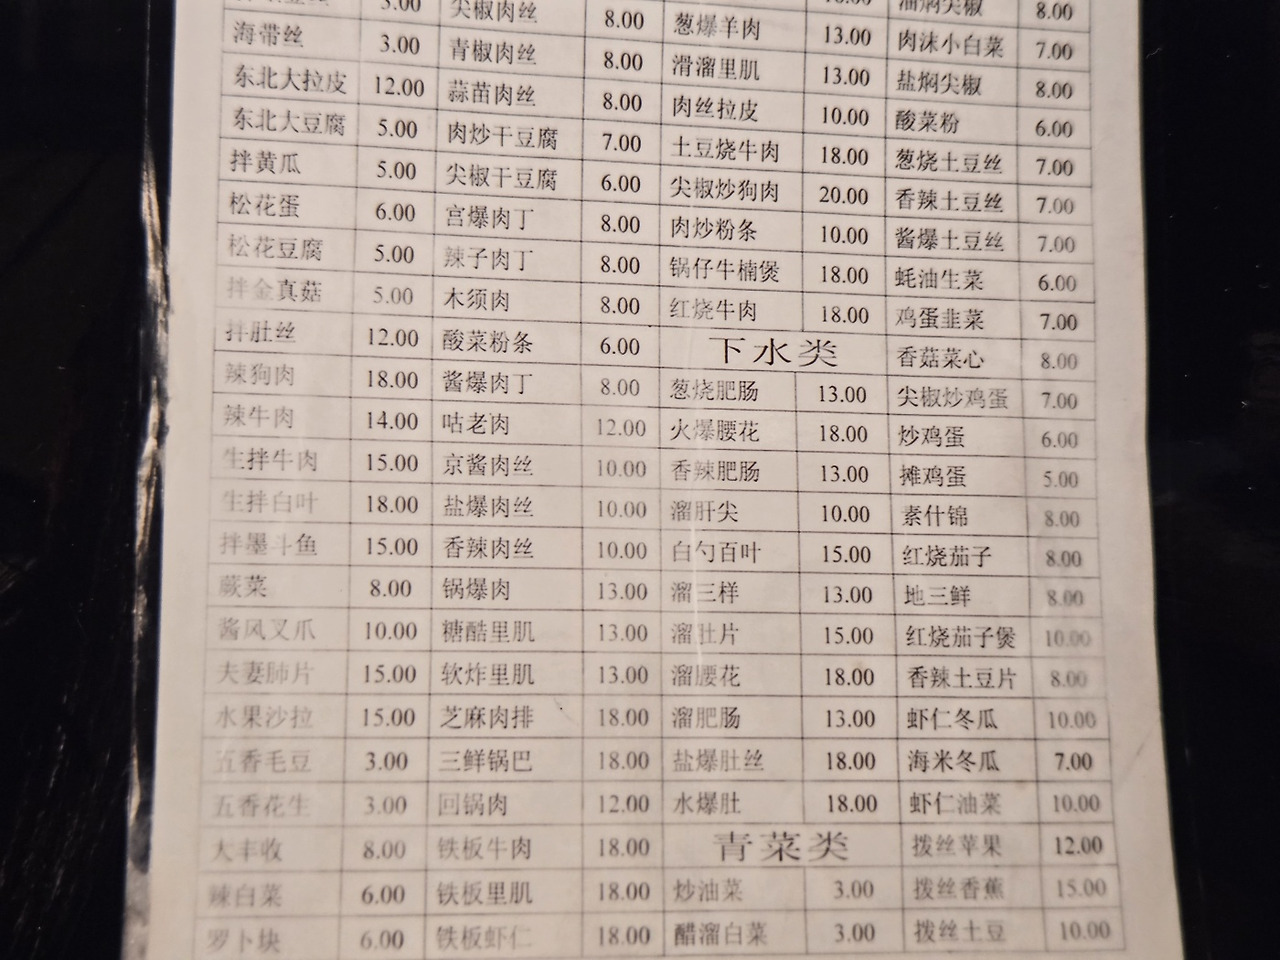 3.00 尖椒肉丝 8.00 葱爆羊肉 13.00 油焖尖椒 8.00
海带丝 3.00 青椒肉丝 8.00 滑溜里肌 13.00 肉沫小白菜 7.00
东北大拉皮 12.00 蒜苗肉丝 8.00 肉丝拉皮 10.00 盐焖尖椒 8.00
东北大豆腐 5.00 肉炒干豆腐 7.00 土豆烧牛肉 18.00 酸菜粉 6.00
拌黄瓜 5.00 尖椒干豆腐 6.00 尖椒炒狗肉 20.00 葱烧土豆丝 7.00
松花蛋 6.00 宫爆肉丁 8.00 肉炒粉条 10.00 香辣土豆丝 7.00
松花豆腐 5.00 辣子肉丁 8.00 锅仔牛楠煲 18.00 酱爆土豆丝 7.00
拌金真菇 5.00 木须肉 8.00 红烧牛肉 18.00 蚝油生菜 6.00
拌肚丝 12.00 酸菜粉条 6.00 下水类 鸡蛋韭菜 7.00
辣狗肉 18.00 酱爆肉丁 8.00 葱烧肥肠 13.00 香菇菜心 8.00
辣牛肉 14.00 咕老肉 12.00 火爆腰花 18.00 尖椒炒鸡蛋 7.00
生拌牛肉 15.00 京酱肉丝 10.00 香辣肥肠 13.00 炒鸡蛋 6.00
生拌白叶 18.00 盐爆肉丝 10.00 溜肝尖 10.00 摊鸡蛋 5.00
拌墨斗鱼 15.00 香辣肉丝 10.00 白勺百叶 15.00 素什锦 8.00
蕨菜 8.00 锅爆肉 13.00 溜三样 13.00 红烧茄子 8.00
酱凤叉爪 10.00 糖酷里肌 13.00 溜肚片 15.00 地三鲜 8.00
夫妻肺片 15.00 软炸里肌 13.00 溜腰花 18.00 红烧茄子煲 10.00
水果沙拉 15.00 芝麻肉排 18.00 溜肥肠 13.00 香辣土豆片 8.00
五香毛豆 3.00 三鲜锅巴 18.00 盐爆肚丝 18.00 虾仁冬瓜 10.00
五香花生 3.00 回锅肉 12.00 水爆肚 18.00 海米冬瓜 7.00
大丰收 8.00 铁板牛肉 18.00 青菜类 虾仁油菜 10.00
辣白菜 6.00 铁板里肌 18.00 炒油菜 3.00 拨丝苹果 12.00
罗卜块 6.00 铁板虾仁 18.00 醋溜白菜 3.00 拨丝香蕉 15.00
拨丝土豆 10.00